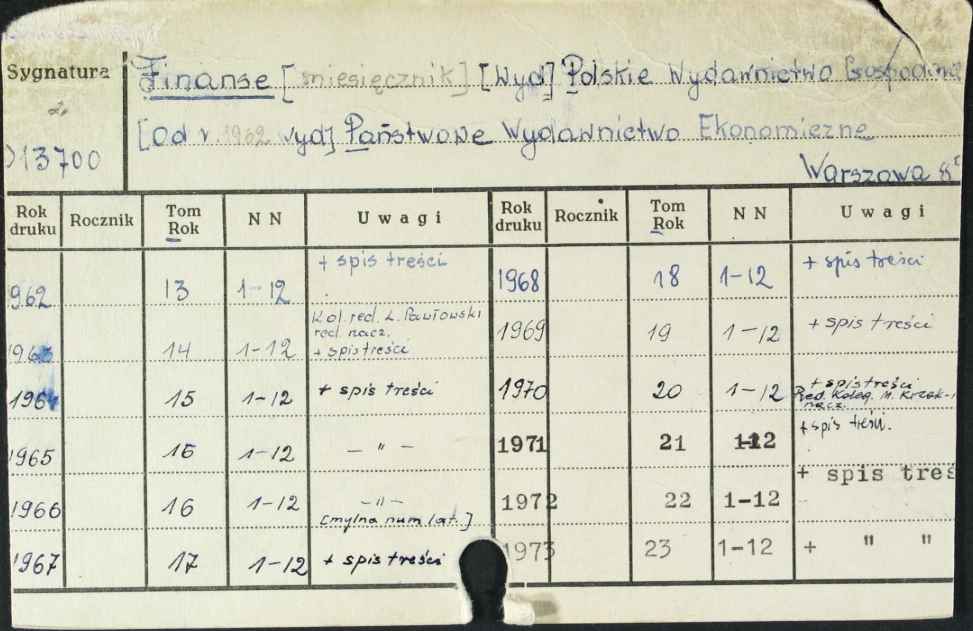 Sygnatura
Finanse [miesięcznik] [Wyd] Polskie Wydawnictwo
[Od r. 1962 wyd] Państwowe Wydawnictwo Ekonomiczne
13700
Warszawa 8°
Rok druku Rocznik Tom Rok NN Uwagi Rok druku Rocznik Tom Rok NN Uwagi
962 13 1-12 + spis treści 1968 18 1-12 + spis treści
Kol. red. L. Pawłowski
red. nacz.
1963 14 1-12 + spis treści 1969 19 1-12 + spis treści
1964 15 1-12 + spis treści 1970 20 1-12 + spis treści
Red. Koleg. M.
nacz.
1965 15 1-12 — " — 1971 21 1-12 + spis treści.
1966 16 1-12 — " — 1972 22 1-12 + spis treś
[mylna num lat.]
1967 17 1-12 + spis treści 1973 23 1-12 + " "